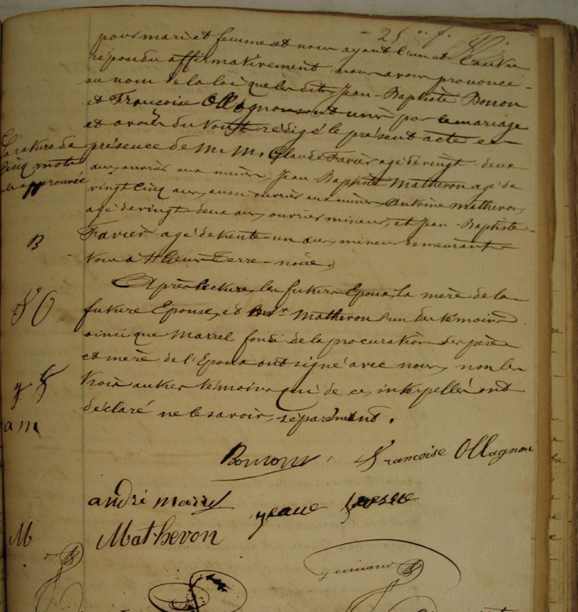 25
pour mari et femme et nous ayant l'un et l'autre
répondu affirmativement nous avons prononcé
au nom de la loi que les dits Jean-Baptiste
et Françoise Ollagnon sont unis par le mariage
et avons du tout rédigé le présent acte en
présence de M.M. Claude Favier agé de vingt deux
ans, ouvrier aux mines, Jean Baptiste Matheron agé de
vingt cinq ans, aussi ouvrier aux mines Antoine Matheron,
agé de vingt deux ans, ouvrier mineur, et Jean-Baptiste
Favier agé de trente un ans, mineur demeurant
tous à Terre-noire.
La rature de
cinq mots
approuvée
B
Après lecture, les futurs Epoux, la mère de la
future Epouse, et Matheron l'un des témoins
ainsi que Marrel fondé de la procuration des père
et mère de l'Epoux ont signé avec nous, non les
trois autres témoins qui de ce, interpellés ont
déclaré ne le savoir, séparément.
f O
am
françoise Ollagnon
andré marrel
Matheron
M